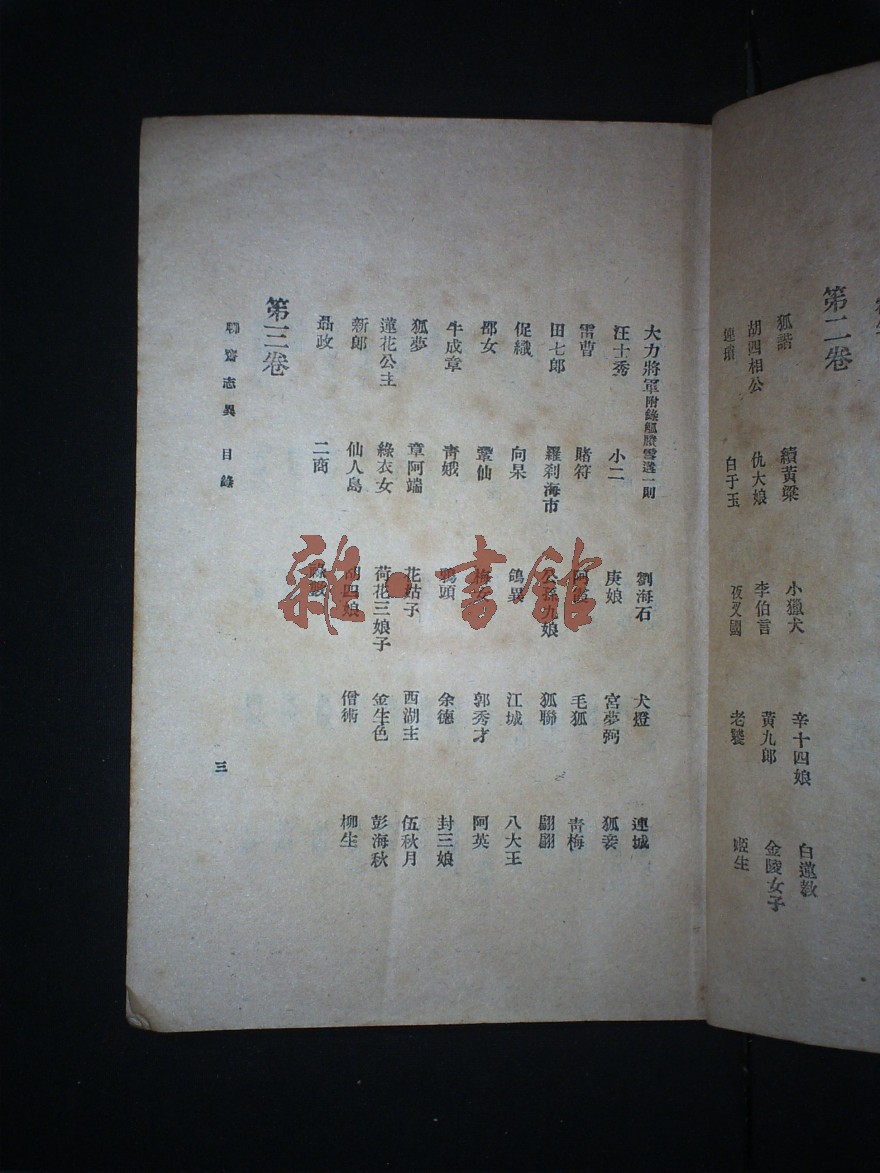 第二卷
狐諧 續黃粱 小獵犬 辛十四娘 白蓮教
胡四相公 仇大娘 李伯言 黃九郎 金陵女子
連瑣 白于玉 夜叉國 老饕 姬生
大力將軍附錄觚賸雪遘一則 劉海石 犬燈 連城
汪士秀 小二 庚娘 宮夢弼 狐妾
雷曹 賭符 阿霞 毛狐 青梅
田七郎 羅刹海市 公孫九娘 狐聯 翩翩
促織 向杲 鴿異 江城 八大王
邵女 鞏仙 梅女 郭秀才 阿英
牛成章 青娥 鴉頭 余德 封三娘
狐夢 章阿端 花姑子 西湖主 伍秋月
蓮花公主 綠衣女 荷花三娘子 金生色 彭海秋
新郎 仙人島 胡四娘 僧術 柳生
聶政 二商
第三卷
聊齋志異 目錄 三
雜·書館